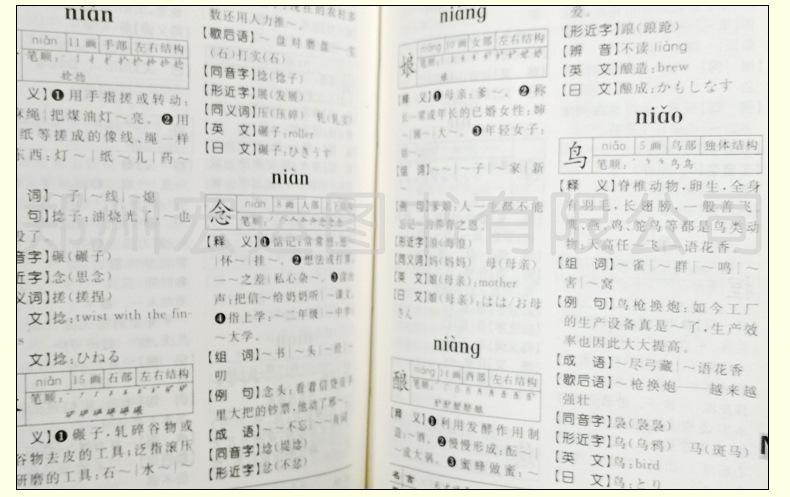 niǎn
niǎn 11画 手部 左右结构
笔顺:
捻捻
义]❶用手指搓或转动:
麻绳|把煤油灯~亮。❷用
纸等搓成的像线、绳一样
东西:灯~|纸~儿|药~
词]~子|~线|~炮
句]捻子:油烧光了,~也
没了
音字]碾(碾子)
近字]念(思念)
义词]搓(搓捏)
文]捻:twist with the fin-
文]捻:ひねる
niǎn 15画 石部 左右结构
笔顺:
义]❶碾子,轧碎谷物或
谷物去皮的工具;泛指滚压
研磨的工具:石~|水~|
数还用人力推~。
[歇后语]~盘对磨盘——实
(石)打实(石)
[同音字]捻(捻子)
[形近字]展(发展)
[同义词]压(压碎) 轧(轧实)
[英 文]碾子:roller
[日 文]碾子:ひきうす
niàn
念
niàn 8画 人部
笔顺:
[释 义]❶惦记;常常想:思
|怀~|挂~。❷想法或打算:
~之差|私心杂~。❸读出
声:把信~给奶奶听|~课文。
❹指上学:~二年级|~中学|
~大学。
[组 词]~书|~头|~经|~
叨
[例 句]念头:看着信袋里
里大把的钞票,他动了邪~。
[成 语]~~不忘|~~有词
[同音字]埝(堤埝)
[形近字]忿(不忿)
niáng
娘
niáng 10画 女部 左右结构
笔顺:
[释 义]❶母亲:爹~。❷称
长一辈或年长的已婚女性:婶
~|姨~|大~。❸年轻女子:
[组 词]~~|~子|~家|新
~
[例 句]爹娘:人一生都不能
忘记~的养育之恩。
[形近字]浪(海浪)
[同义词]妈(妈妈) 母(母亲)
[英 文]娘(母亲):mother
[日 文]娘(母亲):はは/お母
さん
niàng
酿
niàng 14画 酉部 左右结构
笔顺:
[释 义]❶利用发酵作用制
造:~酒。❷慢慢形成:酝~|
~成大祸。❸蜜蜂做蜜:~
名言
爱。
[形近字]踉(踉跄)
[辨 音]不读liàng
[英 文]酿造:brew
[日 文]酿成:かもしなす
niǎo
鸟
niǎo 5画 鸟部 独体结构
笔顺:
[释 义]脊椎动物,卵生,全身
有羽毛,长翅膀,一般善飞。
燕、鸡、鸵鸟等都是鸟类动
物:天高任~飞|~语花香。
[组 词]~雀|~群|~鸣|~
害|~窝
[例 句]鸟枪换炮:如今工厂
的生产设备真是~了,生产效
率也因此大大提高。
[成 语]~尽弓藏|~语花香
[歇后语]~枪换炮——越来越
强壮
[同音字]袅(袅袅)
[形近字]乌(乌鸦) 马(斑马)
[英 文]鸟:bird
[日 文]鸟:とり